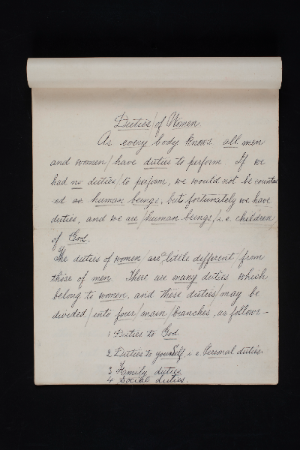 Duties/of Women.
As every body knows all men
and women/have duties to perform. If we
had no duties/to perform, we would not be count-
ed as human beings, but fortunately we have
duties, and we are/human beings/i.e. children
of God.
The duties of women are a little different from
those of men. There are many duties which
belong to women, and these duties/may be
divided/into four/main/branches, as follows:-
1 Duties to God
2 Duties to yourself, i.e. Personal duties.
3 Family duties
4 Social duties.